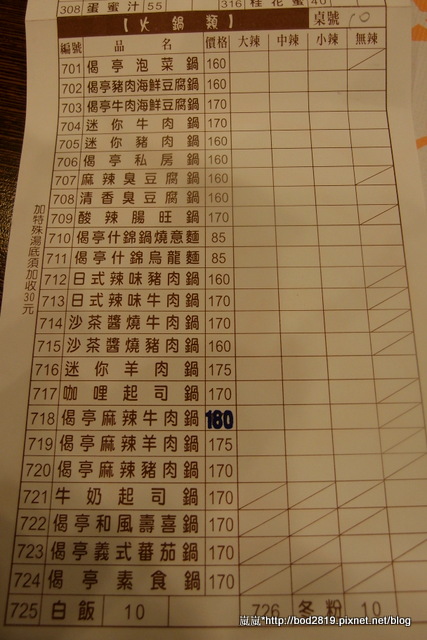 308 蛋蜜汁 55 316 桂花蜜 40
【火鍋類】 桌號 10
編號 品名 價格 大辣 中辣 小辣 無辣
701 偈亭泡菜鍋 160
702 偈亭豬肉海鮮豆腐鍋 160
703 偈亭牛肉海鮮豆腐鍋 170
704 迷你牛肉鍋 160
705 迷你豬肉鍋 160
706 偈亭私房鍋 160
707 麻辣臭豆腐鍋 160
708 清香臭豆腐鍋 160
709 酸辣腸旺鍋 170
710 偈亭什錦鍋燒意麵 85
711 偈亭什錦烏龍麵 85
712 日式辣味豬肉鍋 160
713 日式辣味牛肉鍋 170
714 沙茶醬燒牛肉鍋 170
715 沙茶醬燒豬肉鍋 160
716 迷你羊肉鍋 175
717 咖哩起司鍋 170
718 偈亭麻辣牛肉鍋 180
719 偈亭麻辣羊肉鍋 175
720 偈亭麻辣豬肉鍋 170
721 牛奶起司鍋 170
722 偈亭和風壽喜鍋 170
723 偈亭義式蕃茄鍋 170
724 偈亭素食鍋 170
725 白飯 10 726 冬粉 10
加特殊湯底須加收30元
嵐嵐*http://bod2819.pixnet.net/blog